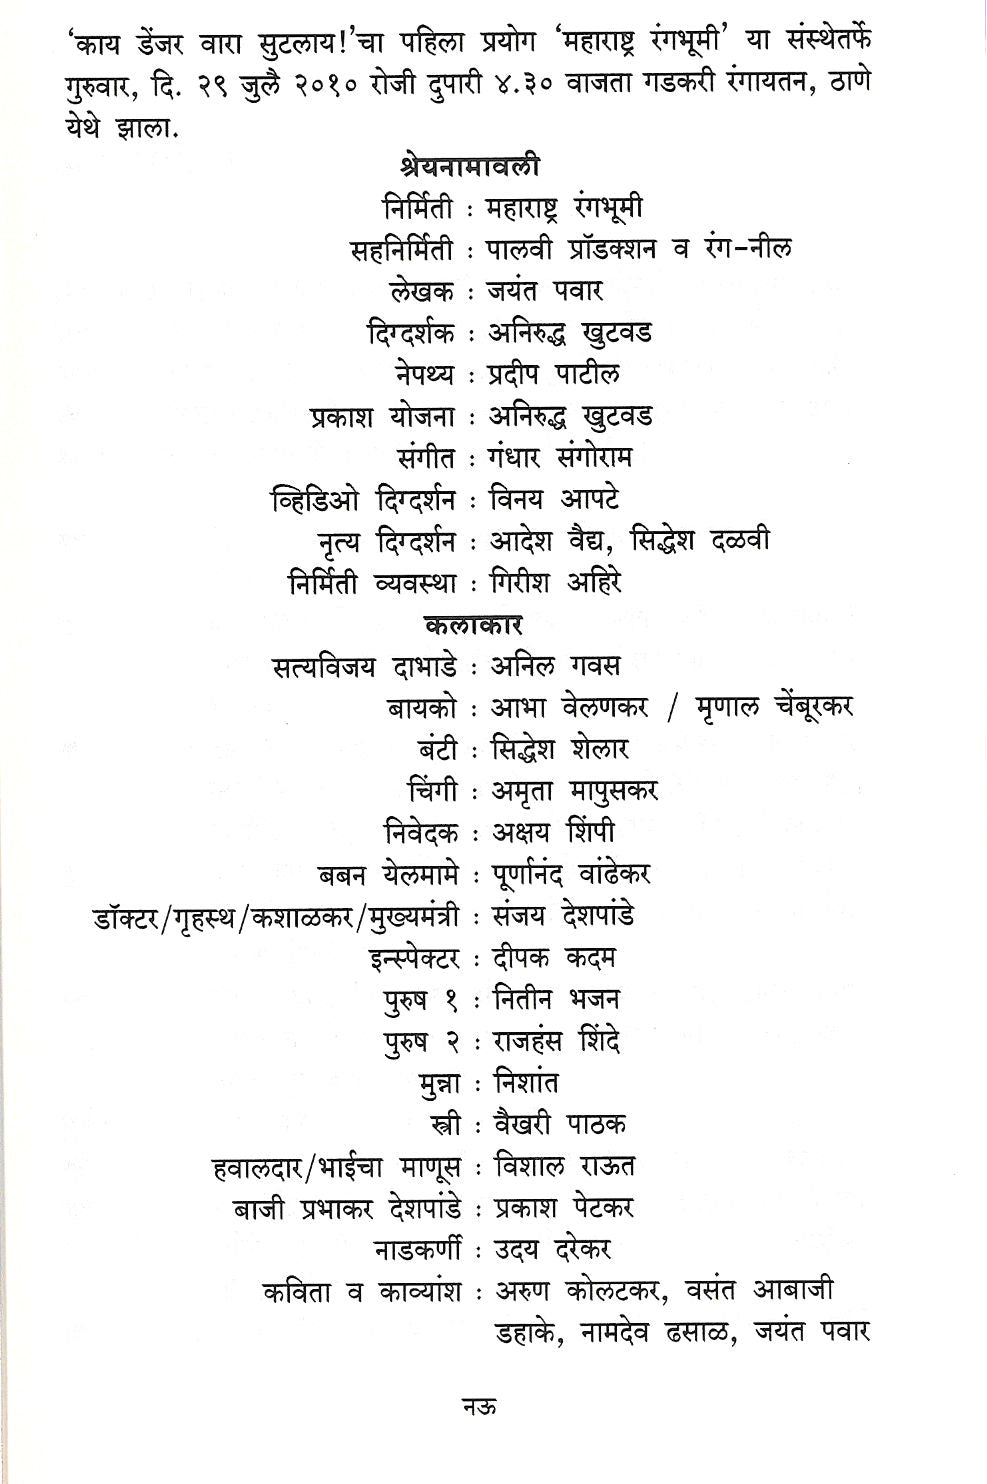 ‘काय डेंजर वारा सुटलाय!’चा पहिला प्रयोग ‘महाराष्ट्र रंगभूमी’ या संस्थेतर्फे
गुरुवार, दि. २९ जुलै २०१० रोजी दुपारी ४.३० वाजता गडकरी रंगायतन, ठाणे
येथे झाला.
श्रेयनामावली
निर्मिती : महाराष्ट्र रंगभूमी
सहनिर्मिती : पालवी प्रॉडक्शन व रंग-नील
लेखक : जयंत पवार
दिग्दर्शक : अनिरुद्ध खुटवड
नेपथ्य : प्रदीप पाटील
प्रकाश योजना : अनिरुद्ध खुटवड
संगीत : गंधार संगोराम
व्हिडिओ दिग्दर्शन : विनय आपटे
नृत्य दिग्दर्शन : आदेश वैद्य, सिद्धेश दळवी
निर्मिती व्यवस्था : गिरीश अहिरे
कलाकार
सत्यविजय दाभाडे : अनिल गवस
बायको : आभा वेलणकर / मृणाल चेंबूरकर
बंटी : सिद्धेश शेलार
चिंगी : अमृता मापुसकर
निवेदक : अक्षय शिंपी
बबन येलमामे : पूर्णानंद वांढेकर
डॉक्टर/गृहस्थ/कशाळकर/मुख्यमंत्री : संजय देशपांडे
इन्स्पेक्टर : दीपक कदम
पुरुष १ : नितीन भजन
पुरुष २ : राजहंस शिंदे
मुन्ना : निशांत
स्त्री : वैखरी पाठक
हवालदार/भाईचा माणूस : विशाल राऊत
बाजी प्रभाकर देशपांडे : प्रकाश पेटकर
नाडकर्णी : उदय दरेकर
कविता व काव्यांश : अरुण कोलटकर, वसंत आबाजी
डहाके, नामदेव ढसाळ, जयंत पवार
नऊ